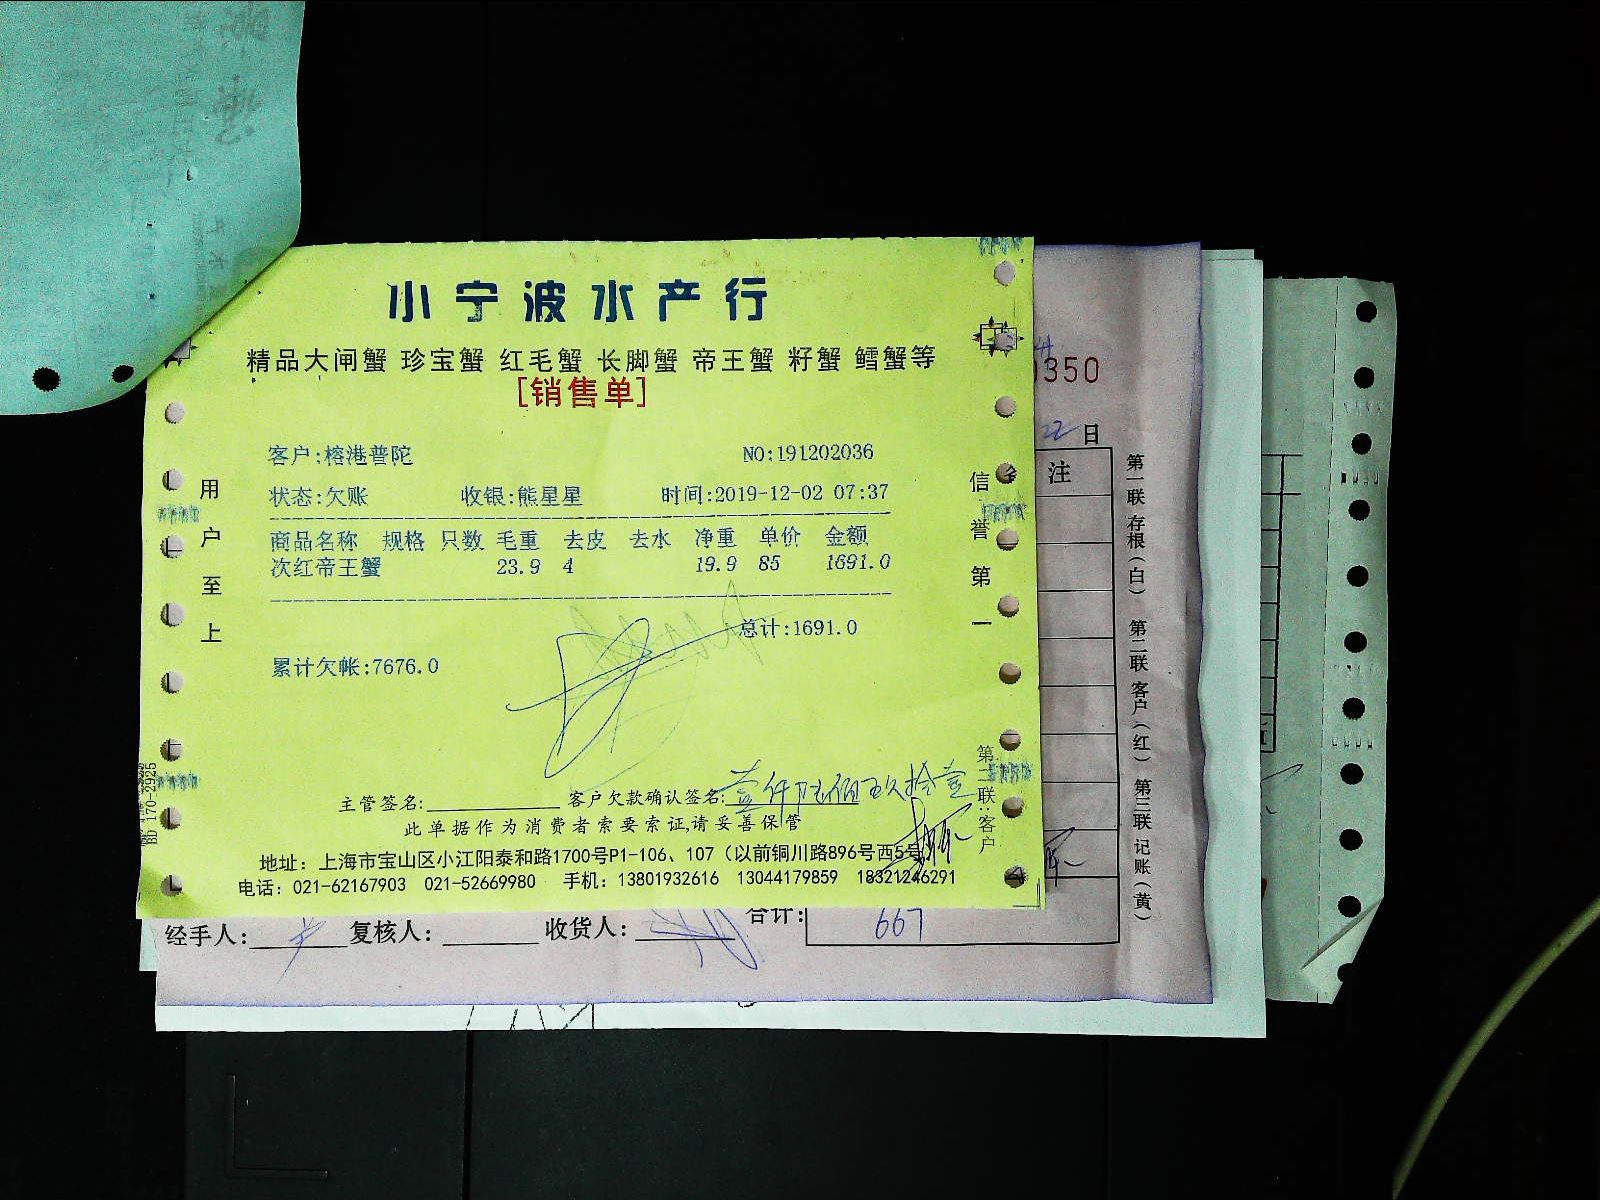 小宁波水产行
精品大闸蟹 珍宝蟹 红毛蟹 长脚蟹 帝王蟹 籽蟹 鳕蟹等
[销售单]
客户:榕港普陀 NO:191202036
状态:欠账 收银:熊星星 时间:2019-12-02 07:37
商品名称 规格 只数 毛重 去皮 去水 净重 单价 金额
次红帝王蟹 23.9 4 19.9 85 1691.0
总计:1691.0
累计欠帐:7676.0
主管签名: 客户欠款确认签名: 壹仟陆佰玖拾壹
此单据作为消费者索要索证,请妥善保管
地址：上海市宝山区小江阳泰和路1700号P1-106、107（以前铜川路896号西5号
电话：021-62167903 021-52669980 手机：13801932616 13044179859 18321246291
用户至上
信誉第一
第二联:客户
BD 170-2925
350
22日
注
第一联 存根(白) 第二联 客户(红) 第三联 记账(黄)
经手人: 复核人: 收货人: 合计: 667